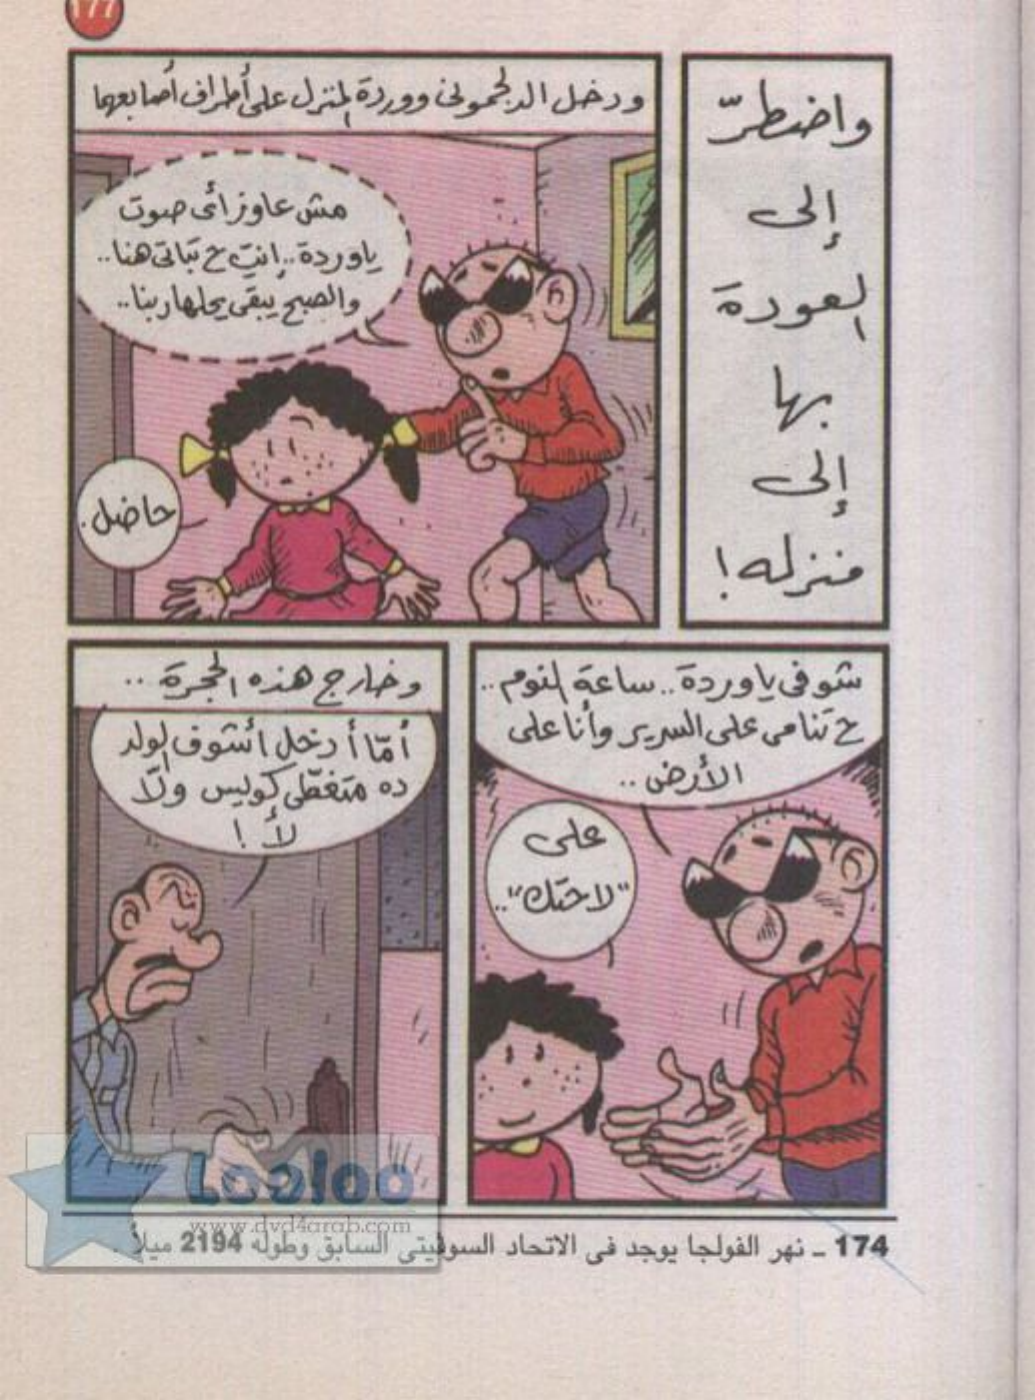 177
واضطرّ
إلى
العودة
بها
إلى
منزله!
ودخل الدبحمونى ووردة المنزل على أطراف أصابعهما
مش عاوز أى صوت
ياوردة.. إنتِ ح تباتى هنا..
والصبح يبقى يحلها ربنا..
حاضل.
شوفى ياوردة.. ساعة النوم..
ح تنامى على السرير وأنا على
الأرض..
على
"لاحتك"..
وخارج هذه الحجرة..
أمّا أدخل أشوف الولد
ده متغطّى كويس ولّا
لأ!
Looloo
www.dvd4arab.com
174 ــ نهر الفولجا يوجد فى الاتحاد السوفيتى السابق وطوله 2194 ميلاً.